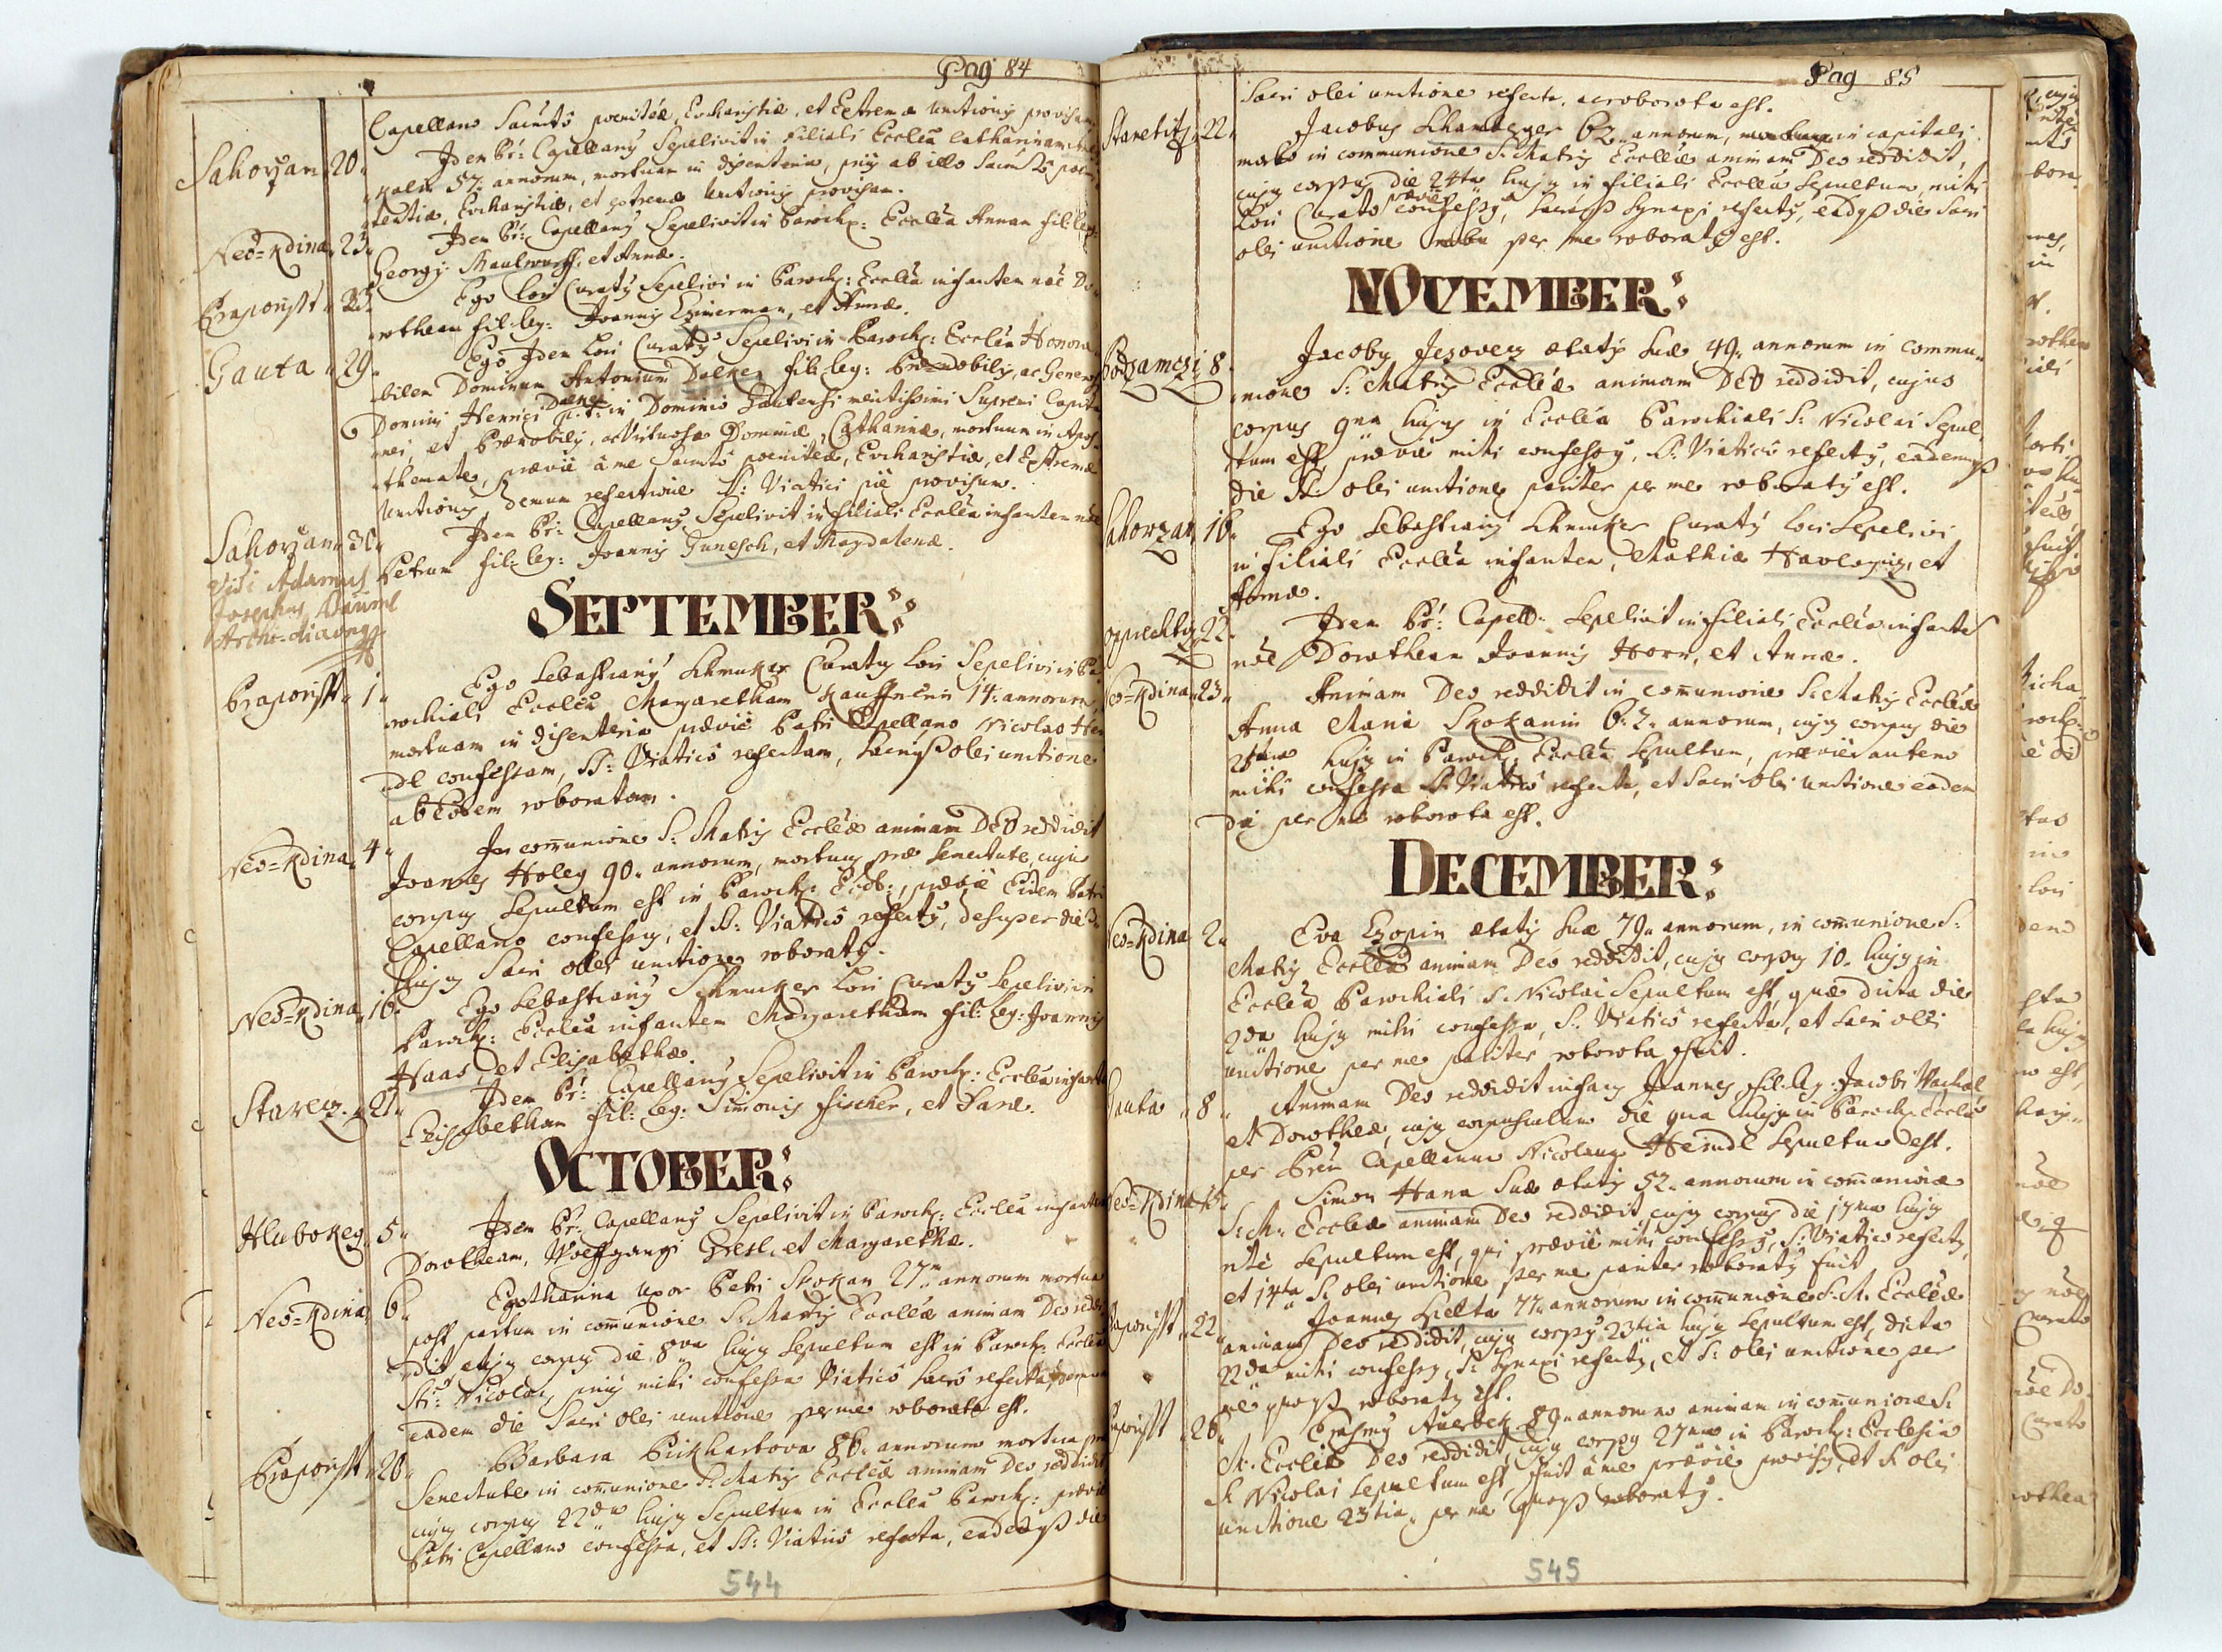 Pag 84
Capellano Sacrmto poenitae, Eucharistiae, et Extremae unctionis provisam
Sahorzan 20. Idem Pr: Capellanus Sepelivit in Filiali Ecclia Catharinam
57. annorum, mortuam in disenteria, prius ab illo Sacmto poeni
tentiae, Eucharistiae, et extremae Unctionis provisam.
Neo=Kdina 23. Idem Pr: Capellanus Sepelivit in Paroch: Ecclia Annam fil: leg:
Georgij Maulwurff, et Annae.
Praporisst Ego Loci Curatus Sepelivi in Paroch: Ecclia infantem noe Do
rotheam fil: leg: Joannis Zimerman, et Annae.
Gauta 29. Ego Idem Loci Curatus Sepelivi in Paroch: Ecclia Honora
bilem Dominum Antonium Dalney fil: leg: Praenobilis, ac Generosi
Domini Henrici p.t. in Dominio Gautensi meritissimi Supremi Capita
nei, et Praenobilis, ac Virtuosae Dominae Catharinae, mortuum in Apos
themate, praevie à me Sacmto poenitae, Eucharistiae, et Extremae
Unctionis, demum refectione SS: Viatici pie provisum.
Sahorzan 30. Idem Pr: Capellanus Sepelivit in filiali Ecclia infantem noe
Petrum fil: leg: Joannis Gunesch, et Magdalenae.
Vidi Adamus
Josephus
Archi-diaconus
SEPTEMBER:
Praporisst 1. Ego Sebastianus Schmuker Curatus Loci Sepelivi in Pa
rochiali Ecclia Margaretham Kauffnerin 14. annorum,
mortuam in disenteria praevie Patri Capellano Nicolao Hei
ndl confessam, SS: Viatico refectam, Sacrique olei unctione
ab Eodem roboratam.
Neo=Kdina 4. In communione S: Matris Eccliae animam DEO reddidit
Joannes Holey 90. annorum, mortuus prae Senectute, cujus
corpus Sepultum est in Paroch: Eccl:, praevie Eidem Patri
Capellano confessus, et SS: Viatico refectus, desuper die
hujus Sacri olei unctione roboratus.
Neo=Kdina 10. Ego Sebastianus Schmuker Loci Curatus Sepelivi in
Paroch: Ecclia infantem Margaretham fil: leg: Joannis
Haas, et Elisabethae.
Starecz. 21. Idem Pr: Capellanus Sepelivit in Paroch: Ecclia infantem
Elisabetham fil: leg: Simonis Fischer, et Sarae.
OCTOBER:
Hlubokey 5. Idem Pr: Capellanus Sepelivit in Paroch: Ecclia infantem
Dorotheam, Wolffgangi Gresl, et Margarethae.
Neo=Kdina 6. Catharina uxor Petri Skokan 27. annorum mortua
post partum in communione S: Matris Eccliae animam Deo reddi
dit cujus corpus die 8va hujus Sepultum est in Paroch: Ecclia
Sti: Nicolai, prius mihi confessa Viatico Sacro refecta, demum
eadem die Sacri olei unctione per me roborata est.
Praporisst 20. Barbara Pickhartova 86. annorum mortua prae
Senectute in communione S: Matris Eccliae animam Deo reddidit
cujus corpus 22da hujus Sepultum in Ecclia Paroch: praevie
Patri Capellano confessa, et SS: Viatico refecta, eademque die
544
Pag 85
Sacri olei unctione refecta, ac roborata est.
Staretitz 22. Jacobus Schamberger 62. annorum, in capitali
morbo in communione S: Matris Eccliae animam Deo reddidit,
cujus corpus die 24ta hujus in filiali Ecclia Sepultum, mihi
Loci Curato praevie confessus, Sacraque Synaxi refectus, eadque die Sacri
olei unctione per me roboratus est.
NOVEMBER:
Podzamczi 8. Jacobus Jezovecz aetatis suae 49. annorum in commu
nione S: Matris Eccliae animam DEO reddidit, cujus
corpus 9na hujus in Ecclia Parochiali S: Nicolai Sepul
tum est, praevie mihi confessus, S: Viatico refectus, eademque
die S: olei unctione pariter per me roboratus est.
Sahorzan 16. Ego Sebastianus Schmuker Curatus Loci Sepelivi
in Filiali Ecclia infantem, Mathiae Havlopig, et
Annae.
Oprechtiz 22. Idem Pr: Capell: Sepelivit in filiali Ecclia infantem
noe Dorotheam Joannis Horn, et Annae.
Neo=Kdina 23. Animam Deo reddidit in communione S: Matris Eccliae
Anna Maria Skokanin 62. annorum, cujus corpus die
25ta hujus in Paroch: Ecclia Sepultum, praevie autem
mihi confessa S: Viatico refecta, et Sacri olei unctione eadem
die per me roborata est.
DECEMBER:
Neo=Kdina 2. Eva Czopin aetatis suae 79. annorum, in communione S:
Matris Eccliae animam Deo reddidit, cujus corpus 10. hujus in
Ecclia Parochiali S: Nicolai Sepultum est, quae dicta die
2da hujus mihi confessa, S: Viatico refecta, et Sacri olei
unctione per me pariter roborata fuit.
Gauta 8. Animam Deo reddidit infans Joannes, fil: leg: Jacobi Wachal
et Dorotheae, cujus corpusculum die 9na hujus in Paroch: Ecclia
per Prem Capellanum Nicolaum Heindl Sepultum est.
Neo=Kdina 15. Simon Hana Suae aetatis 52. annorum in communione
S: M: Eccliae animam Deo reddidit, cujus corpus die 17ma hujus
rite Sepultum est, qui praevie mihi confessus, S: Viatico refectus,
et 14ta S: olei unctione per me pariter roboratus fuit.
Praporisst 22. Joannes 77. annorum in communione S: M: Eccliae
animam Deo reddidit, cujus corpus 23tia hujus Sepultum est, dicta
22da mihi confessus, S: Synaxi refectus, et S: olei unctione per
me quoque roboratus est.
Praporisst 26. Erasmus Auerbek 89. annorum animam in communione S:
M: Eccliae Deo reddidit, cujus corpus 27ma in Paroch: Ecclesia
S: Nicolai Sepultum est, fuit à me praevie provisus, et S: olei
unctione 23tia. per me quoque roboratus.
545